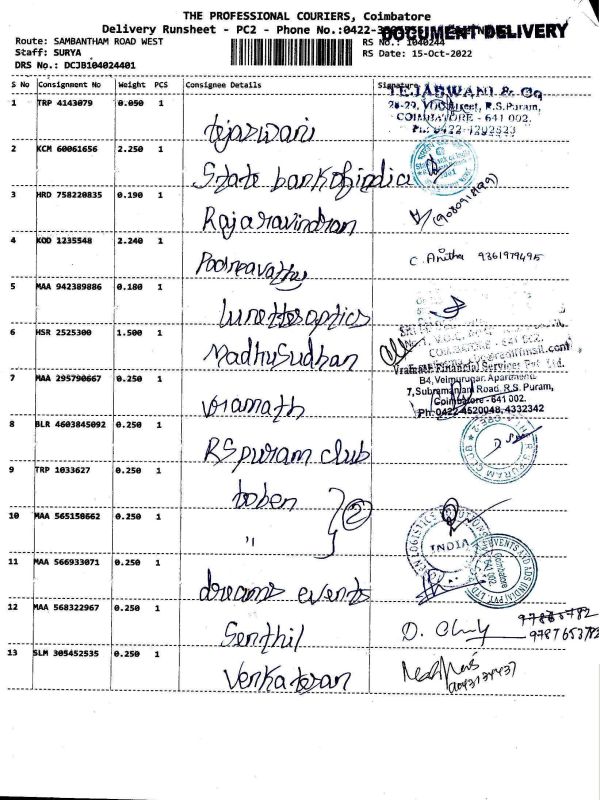 THE PROFESSIONAL COURIERS, Coimbatore
Delivery Runsheet - PC2 - Phone No.:0422-3
DOCUMENT DELIVERY
Route: SAMBANTHAM ROAD WEST
RS No.: 1040244
Staff: SURYA
RS Date: 15-Oct-2022
DRS No.: DCJB104024401
S No Consignment No Weight PCS Consignee Details Signature
TEJASWANI & Co
28-29, VOC Street, R.S.Puram,
COIMBATORE - 641 002.
1 TRP 4143079 0.050 1 tejaswani
2 KCM 60061656 2.250 1 State bank of india
3 HRD 758220835 0.190 1 Rajaravindran
4 KOD 1235548 2.240 1
C. Anitha 9361979495
5 MAA 942389886 0.180 1 lunettesoptics
6 HSR 2525300 1.500 1 Madhusudhan
Financial Services Pvt. Ltd.
B4, Velmurugan Apartment
7, Subramaniam Road, R.S. Puram,
Coimbatore - 641 002.
Ph: 0422-4520048, 4332342
7 MAA 295790667 0.250 1 viamath
8 BLR 4603845092 0.250 1 RS puram club
R.S. PURAM CLUB
9 TRP 1033627 0.250 1 boben
2
10 MAA 565150662 0.250 1 "
INDIA
11 MAA 566933071 0.250 1 dreams events
EVENTS AND ADS (INDIA) PVT LTD
Coimbatore
641 002
12 MAA 568322967 0.250 1 Senthil
13 SLM 305452535 0.250 1 Venkatesan